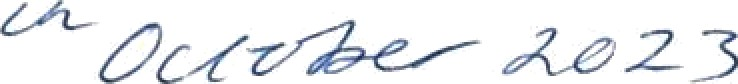 in October 2023